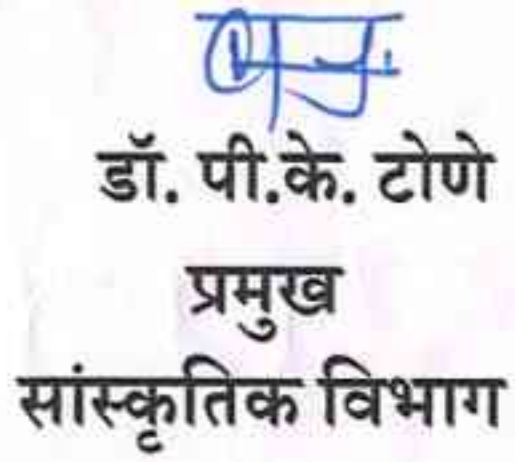 डॉ. पी.के. टोणे
प्रमुख
सांस्कृतिक विभाग